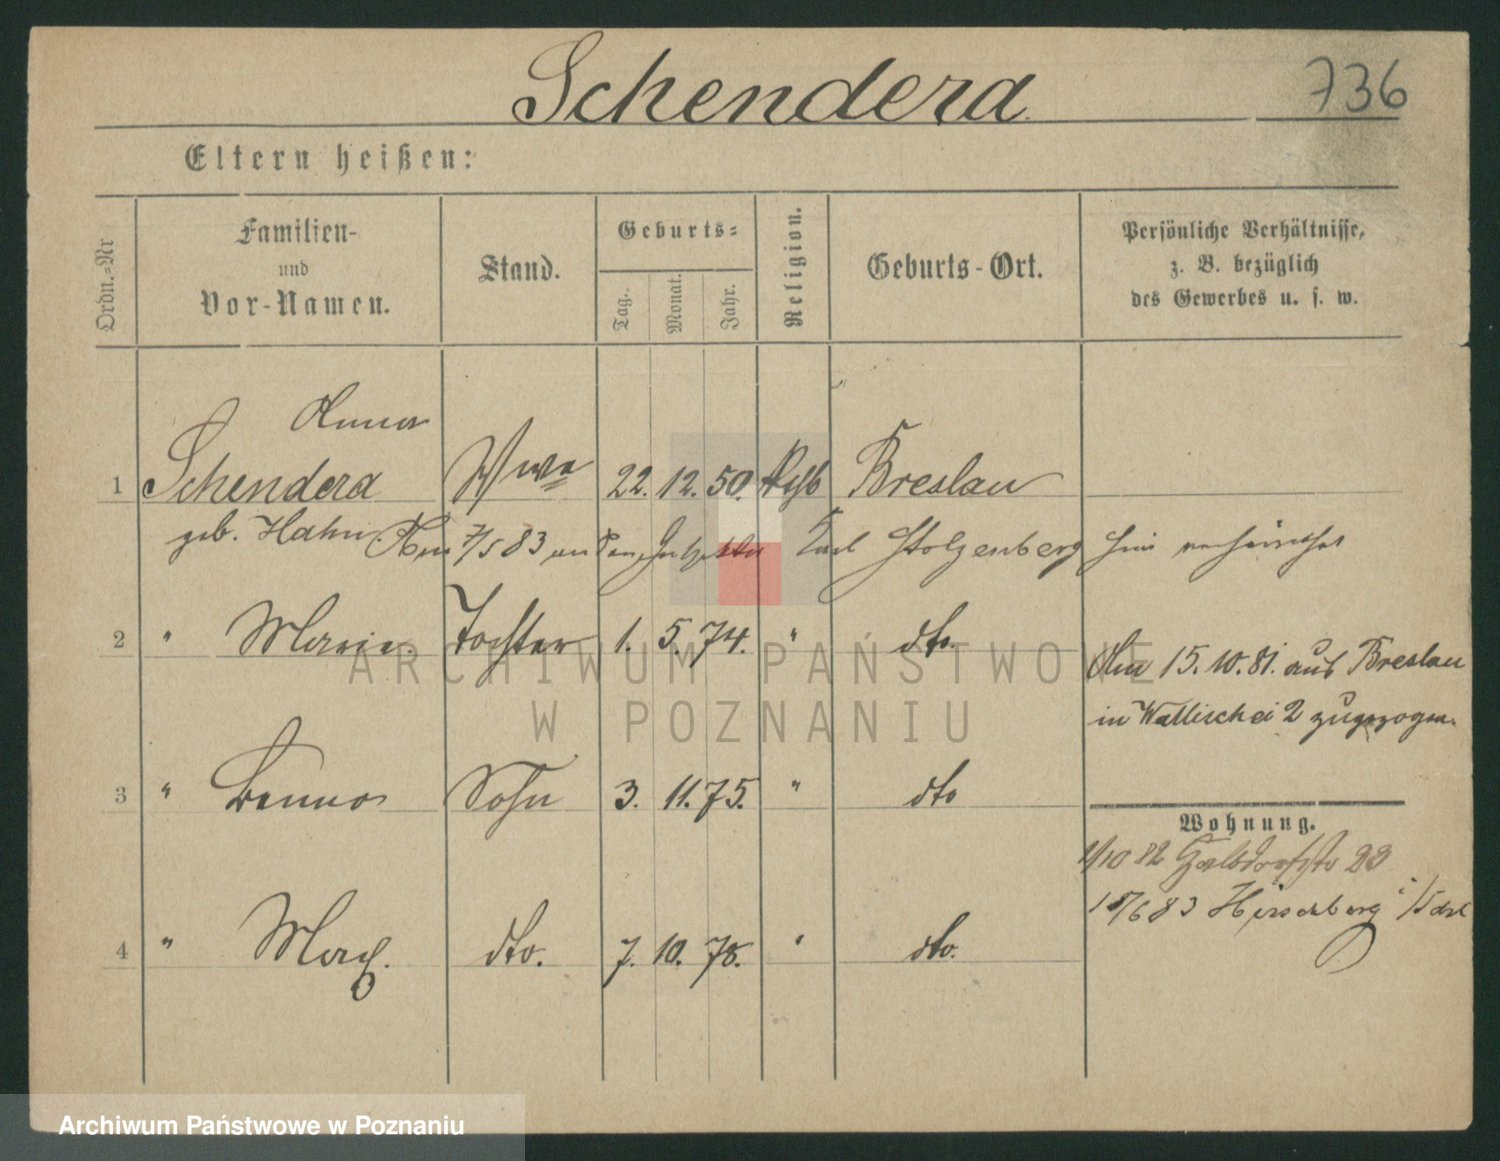 Schendera 736
Eltern heißen:
Ordn.=Nr
Familien-
und
Vor-Namen.
Stand.
Geburts=
Tag.
Monat.
Jahr.
Religion.
Geburts-Ort.
Persönliche Verhältnisse,
z. B. bezüglich
des Gewerbes u. s. w.
Anna
1 Schendera Wwe 22. 12. 50. Breslau
geb. Hahn. Am 7/5 83 an Carl Stolzenberg hier verheirathet
2 " Marie. Tochter 1. 5. 74. " dto.
Am 15. 10. 81. aus Breslau
in Wallischei 2 zugezogen.
3 " Benno Sohn 3. 11. 75. " dto
Wohnung.
1/10 82 23
4 " Max. dto. 7. 10. 78. " dto.
15/6 83 Hirschberg i/Schl
ARCHIWUM PAŃSTWOWE
W POZNANIU
Archiwum Państwowe w Poznaniu